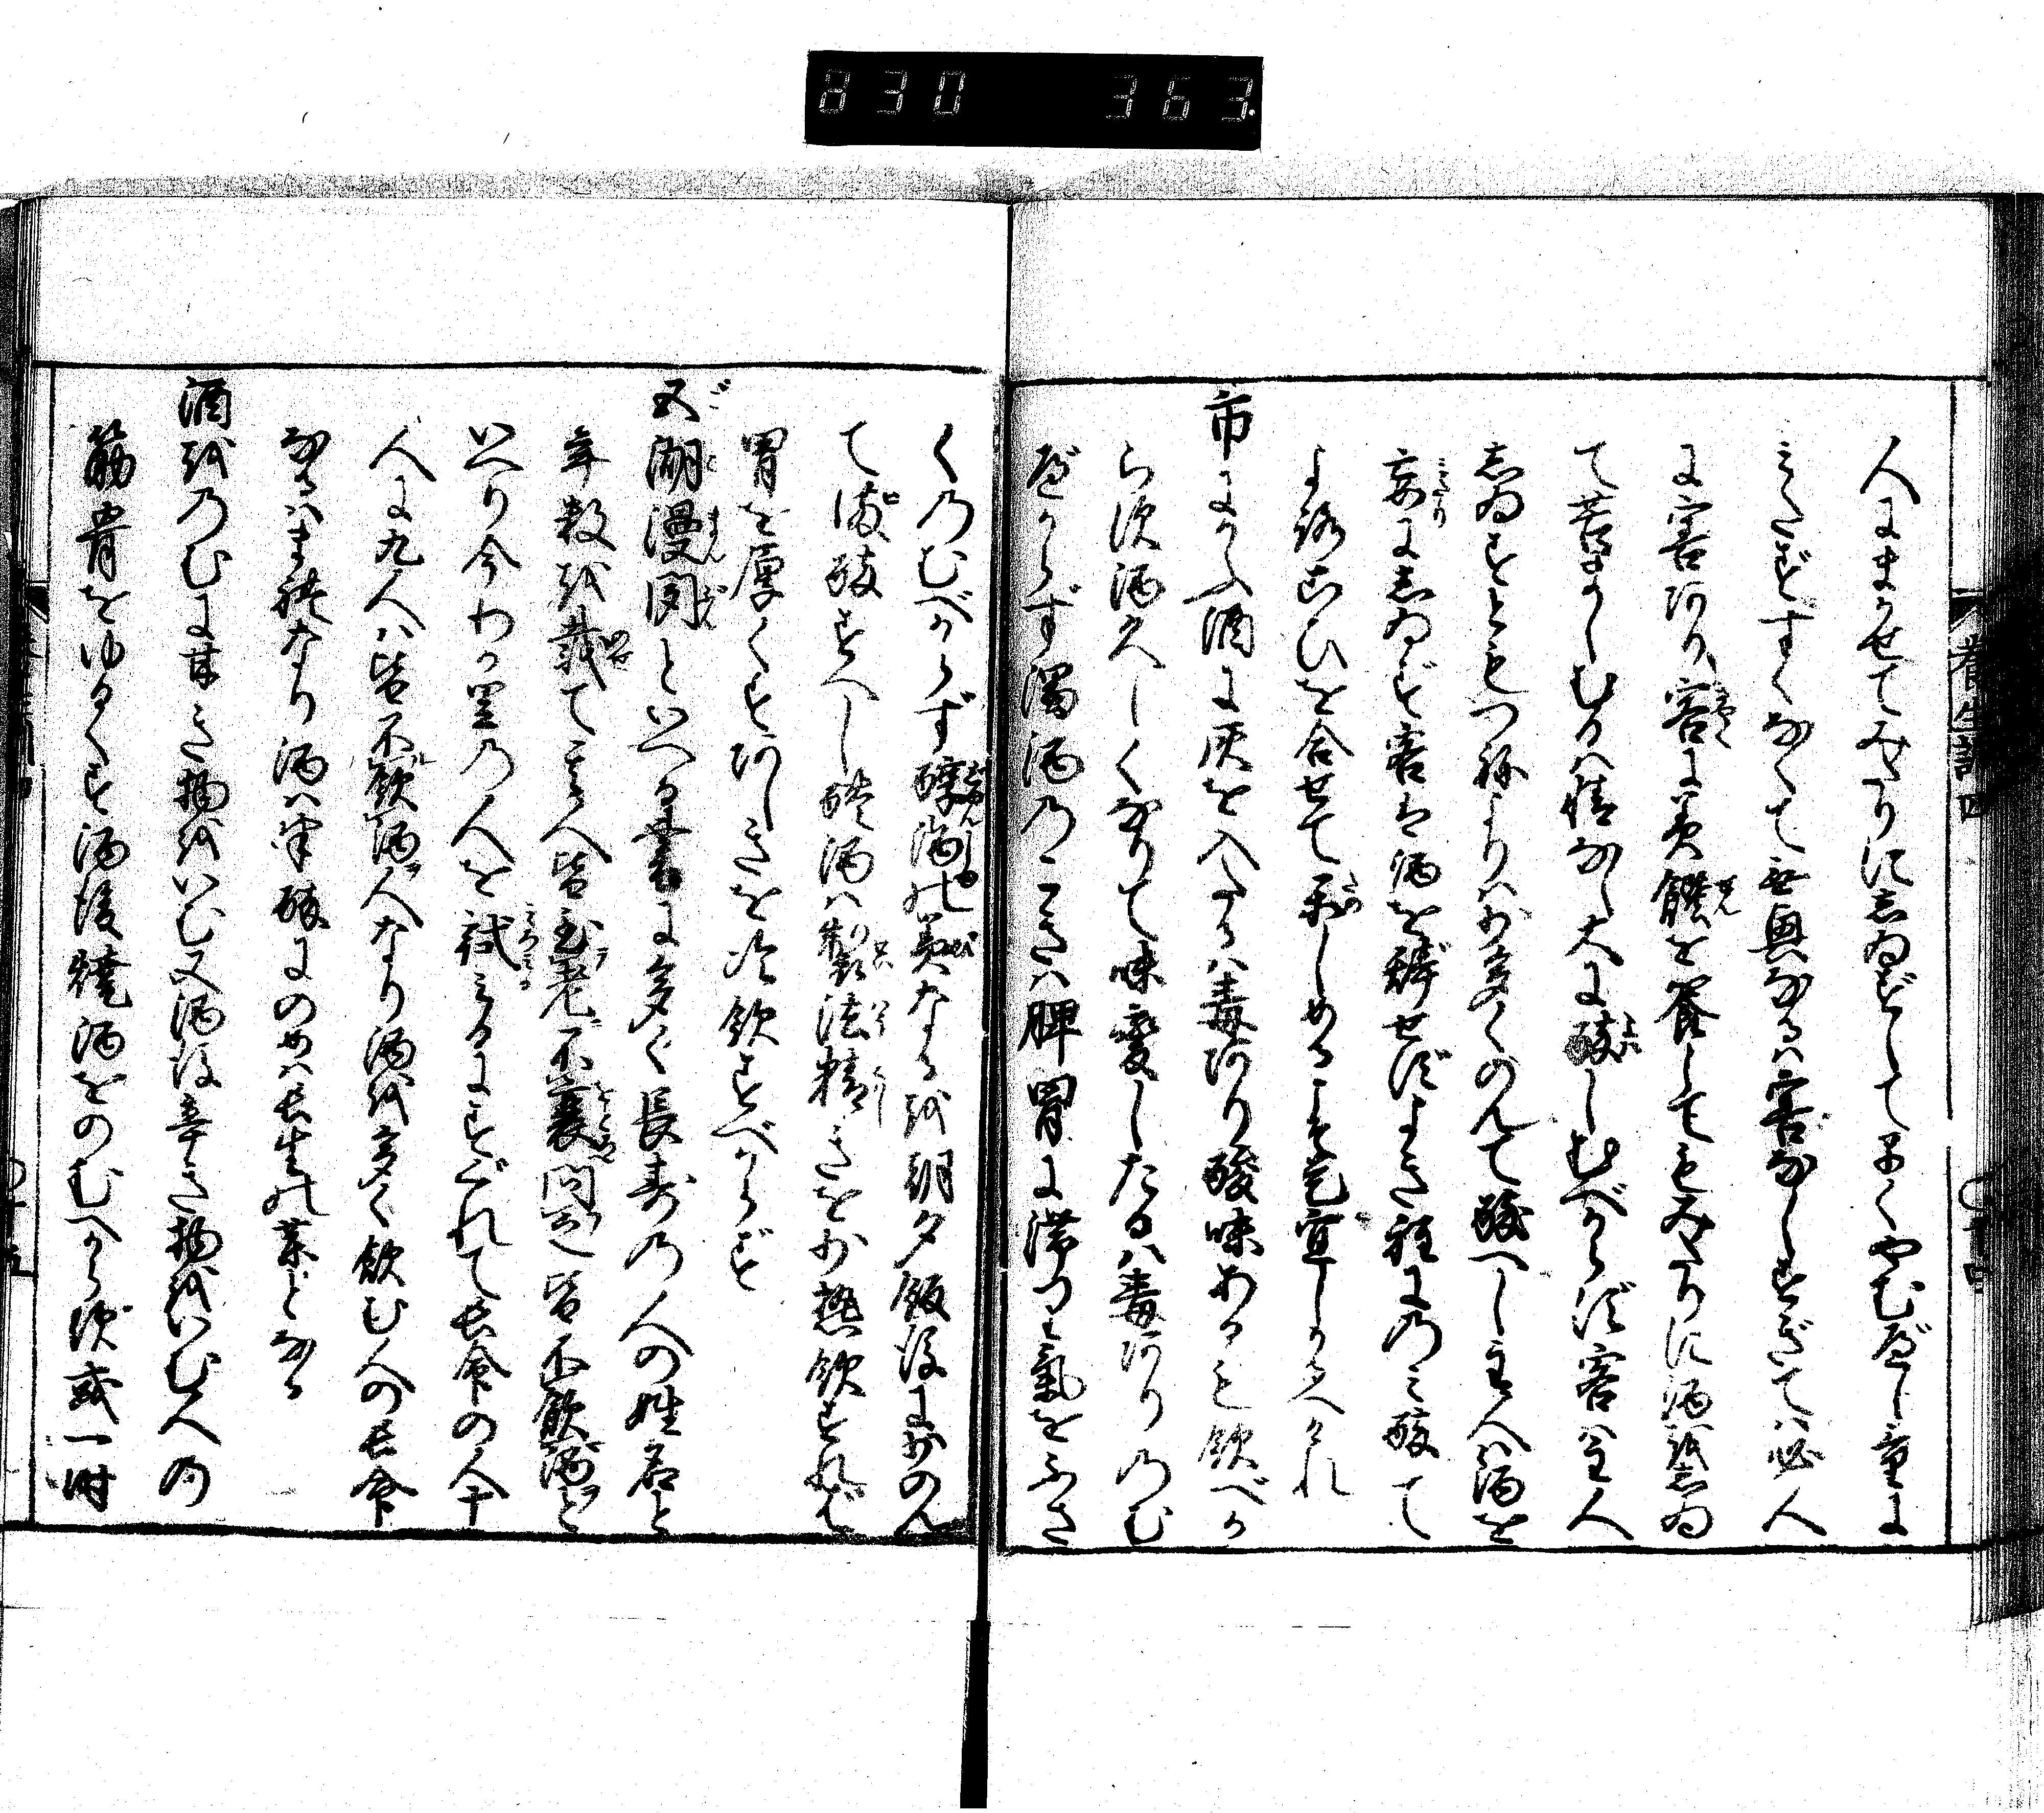 830 363
養生訓四
人にまかせてみだりにしゐずして早くやむべし量に
みたずすくなくて無興なるは害なしすぎては必人
に害あり客に美饌を饗してもみだりに酒をしゐ
て苦ましむるは情なし大に酔しむべからず客は主人
しゐずともつねよりは少多くのんで酔べし主人は酒を
妄にしゐず客は酒を辞せずよき程にのみ酔て
よろこびを合せて楽しめるこそ是宜しかるべけれ
市にかふ酒に灰を入たるは毒あり酸味あるも飲べか
らず酒久しくなりて味変じたるは毒ありのむ
べからず濁酒のこきは脾胃に滞り気をふさ
ぐのむべからず醇酒の美なるを朝夕飯後に少のん
で微酔すべし醴酒は製法精きを少熱飲すれば
胃を厚くすあしきを冷飲すべからず
五湖漫聞といへる書に多く長寿の人の姓名と
年数を載て其人皆至老不衰問之皆不飲酒と
いへり今わが里の人を試みるにすぐれて長命の人十
人に九人は皆不飲酒人なり酒を多く飲む人の長命
なるはまれなり酒は半酔にのめば長生の薬となる
酒をのむに甘き物をいむ又酒後辛き物をいむ人の
筋骨をゆるくす酒後焼酒をのむべからず或一時